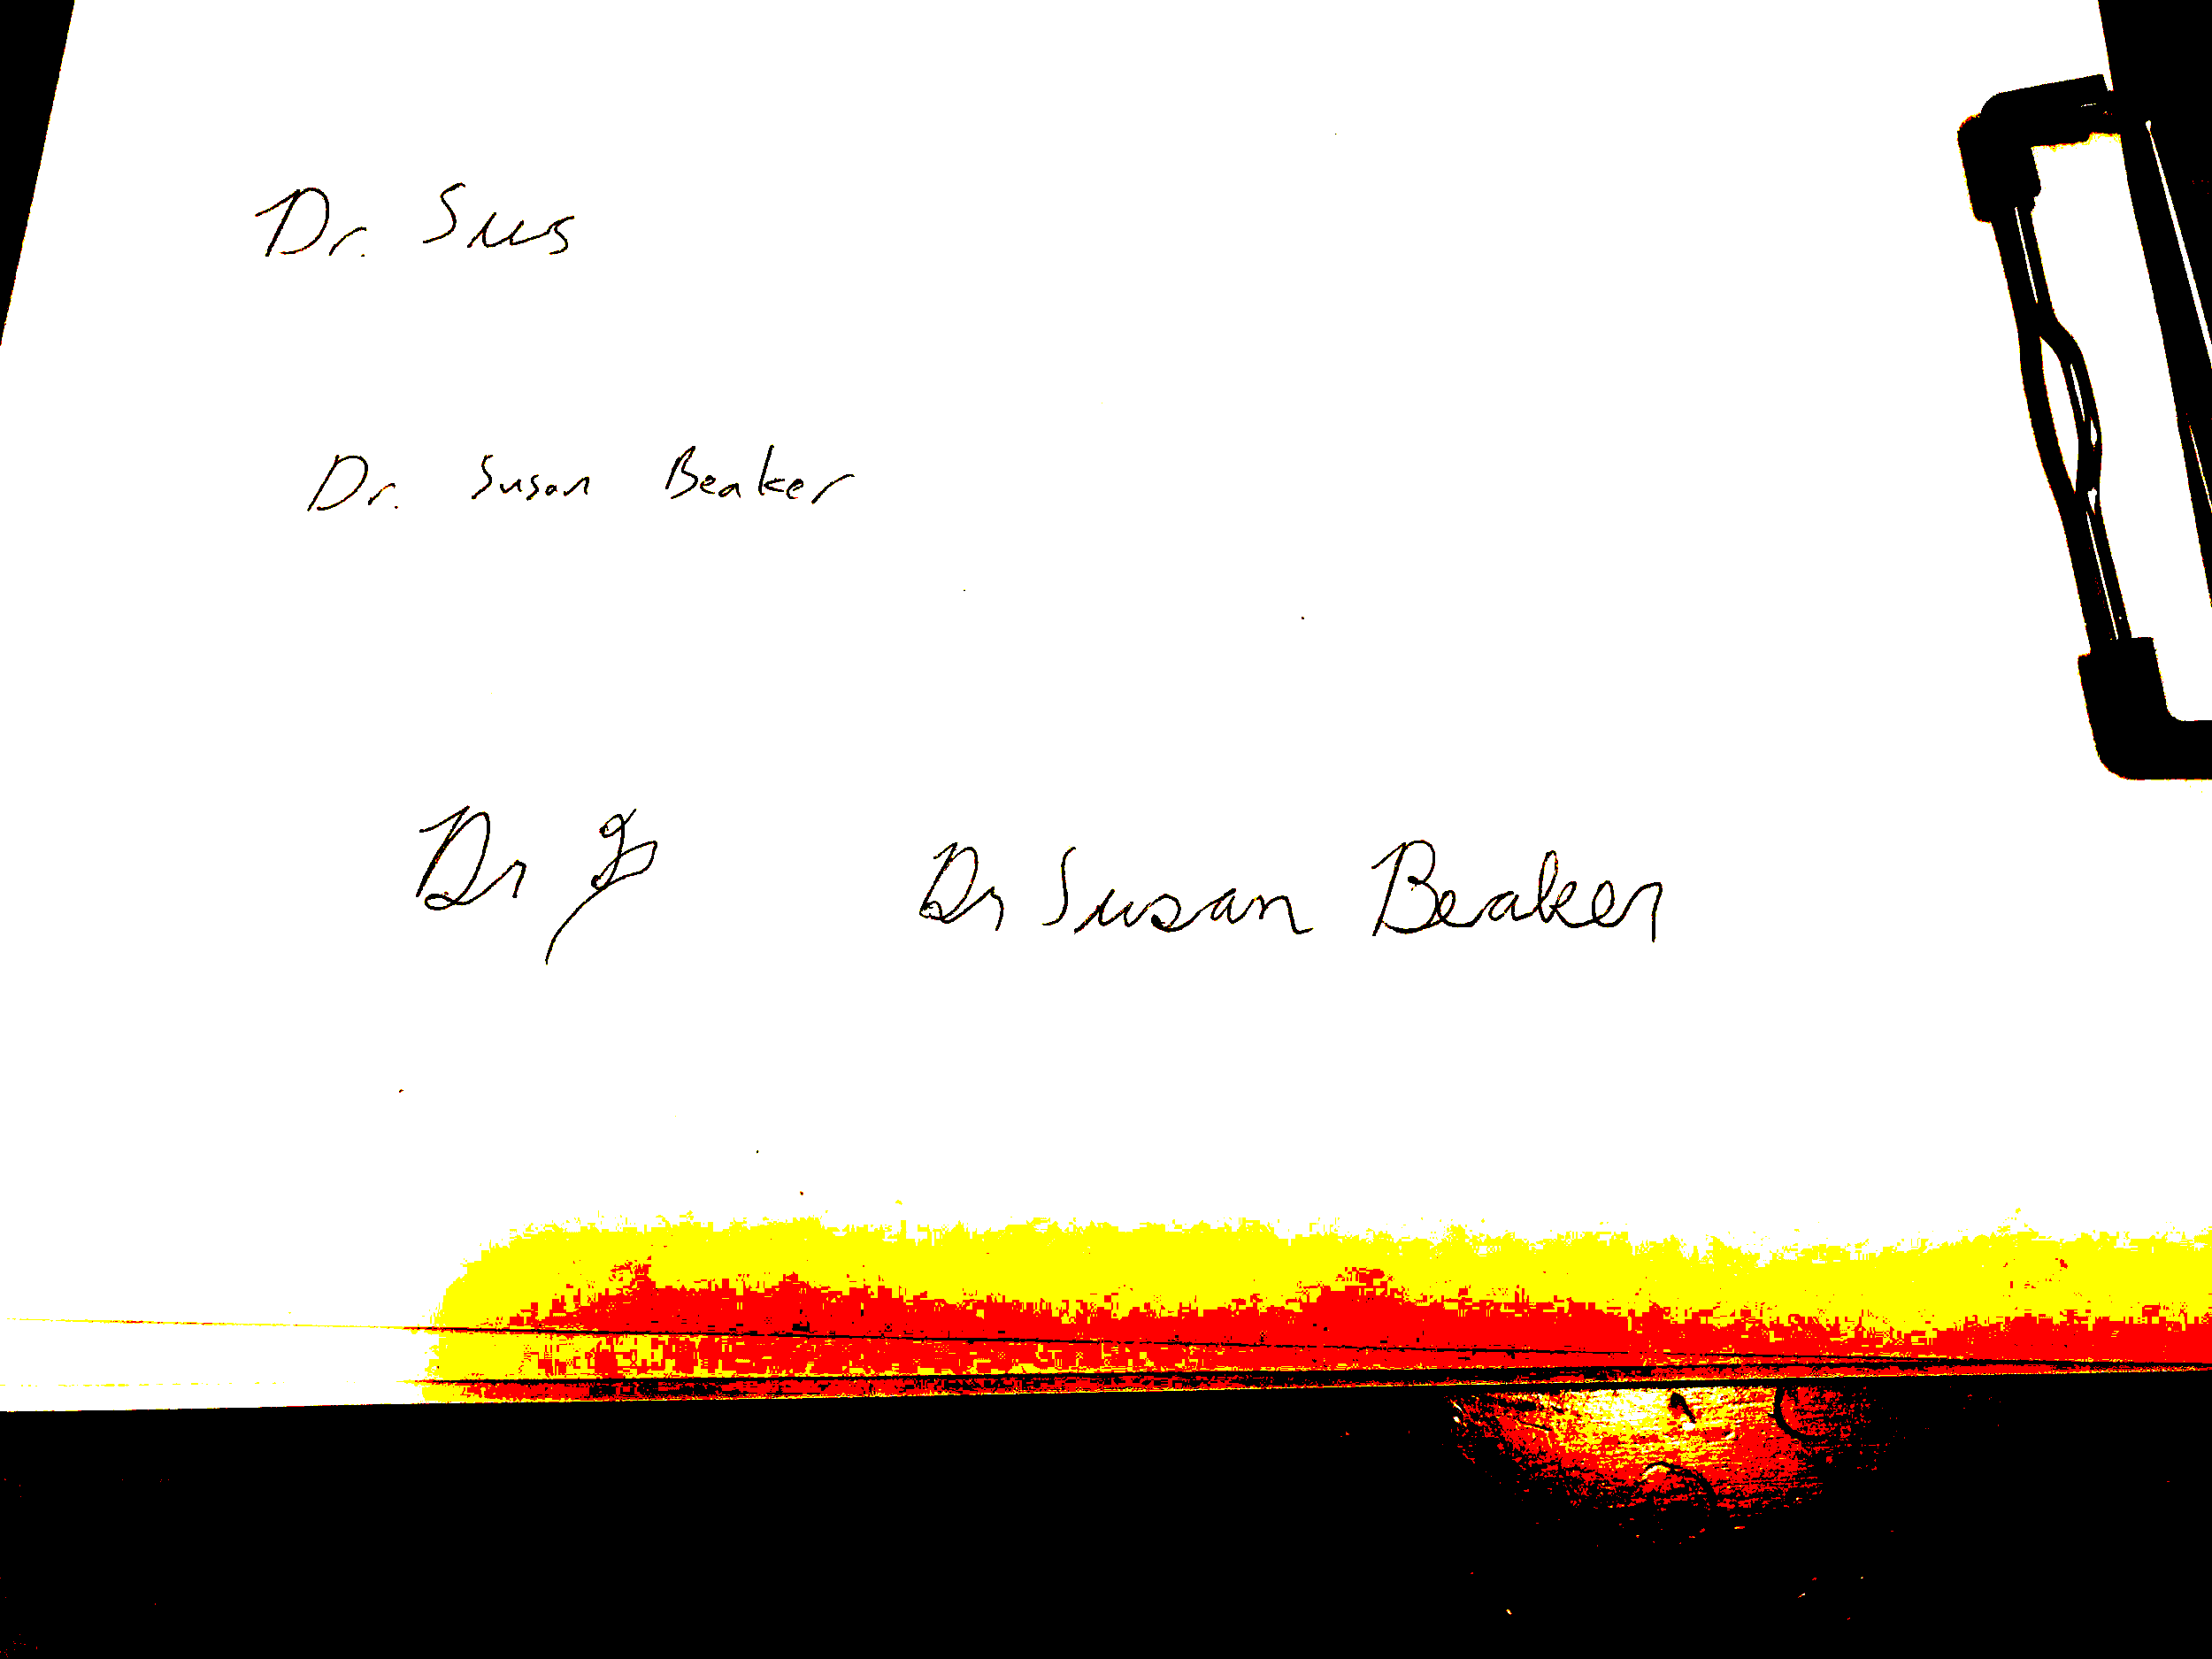 Dr. Sus
Dr. Susan Beaker
Dr Dr Susan Beaker